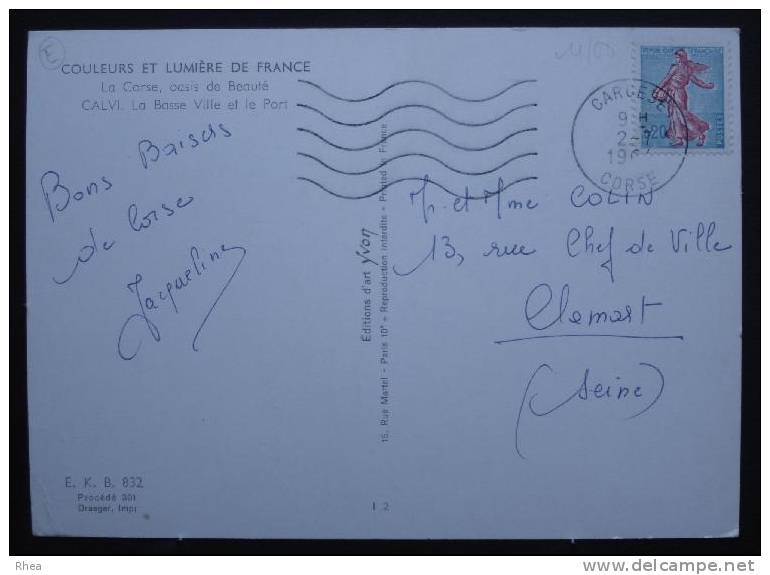 E
COULEURS ET LUMIÈRE DE FRANCE
La Corse, oasis de Beauté
CALVI. La Basse Ville et le Port
Bons Baisers
de Corse
Jacqueline
E. K. B. 832
Procédé 301
Draeger, Impr
Editions d'art Yvon
15, Rue Martel - Paris 10e - Reproduction Interdite - Printed in France
I 2
0,20
CARGESE
9 H
2-7
CORSE
Mr et Mme COLIN
13, rue Chef de Ville
Clamart
(Seine)
Rhea
www.delcampe.net